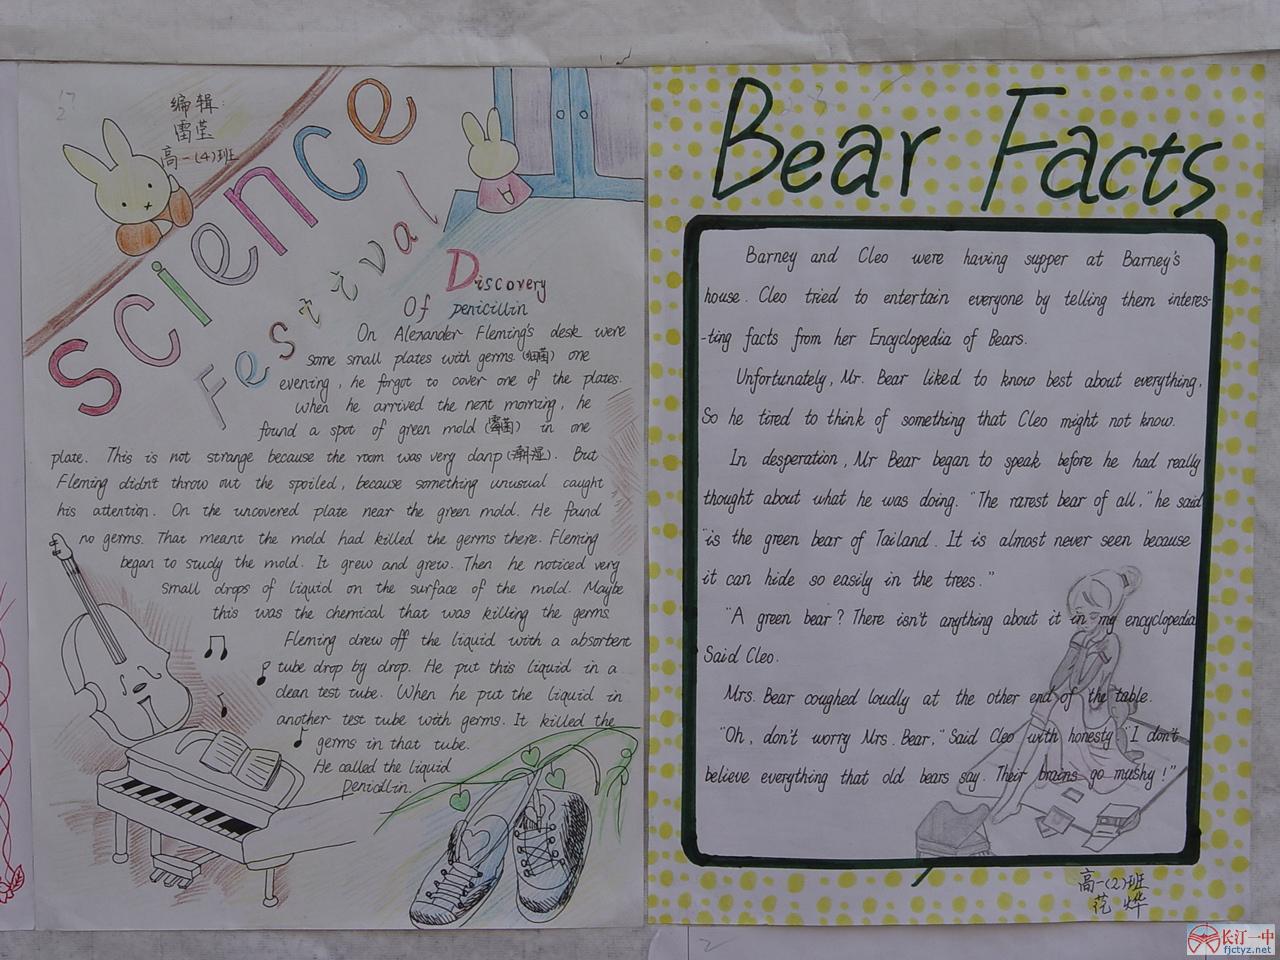 编辑:
雷莹
高一(4)班
Science
Festival
Discovery
Of penicillin
On Alexander Fleming's desk were
some small plates with germs (细菌) one
evening, he forgot to cover one of the plates.
When he arrived the next morning, he
found a spot of green mold (霉菌) in one
plate. This is not strange because the room was very danp (潮湿). But
Fleming didn't throw out the spoiled, because something unusual caught
his attention. On the uncovered plate near the green mold. He found
no germs. That meant the mold had killed the germs there. Fleming
began to study the mold. It grew and grew. Then he noticed very
small drops of liquid on the surface of the mold. Maybe
this was the chemical that was killing the germs.
Fleming drew off the liquid with a absorbent
tube drop by drop. He put this liquid in a
clean test tube. When he put the liquid in
another test tube with germs. It killed the
germs in that tube.
He called the liquid
penicillin.
Bear Facts
Barney and Cleo were having supper at Barney's
house. Cleo tried to entertain everyone by telling them interes-
-ting facts from her Encyclopedia of Bears.
Unfortunately, Mr. Bear liked to know best about everything,
So he tired to think of something that Cleo might not know.
In desperation, Mr Bear began to speak before he had really
thought about what he was doing. "The rarest bear of all," he said
"is the green bear of Tailand. It is almost never seen because
it can hide so easily in the trees."
"A green bear? There isn't anything about it in my encyclopedia
Said Cleo.
Mrs. Bear coughed loudly at the other end of the table.
"Oh, don't worry Mrs. Bear," Said Cleo with honesty. "I don't
believe everything that old bears say. Their brains go mushy!"
高一(2)班
范烨
长汀一中
fjctyz.net